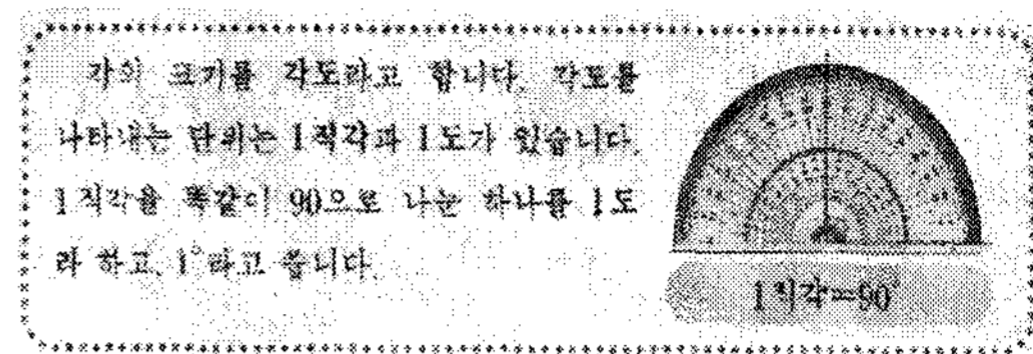 각의 크기를 각도라고 합니다. 각도를
나타내는 단위는 1직각과 1도가 있습니다.
1직각을 똑같이 90으로 나눈 하나를 1도
라 하고, 1°라고 씁니다.
1직각=90°